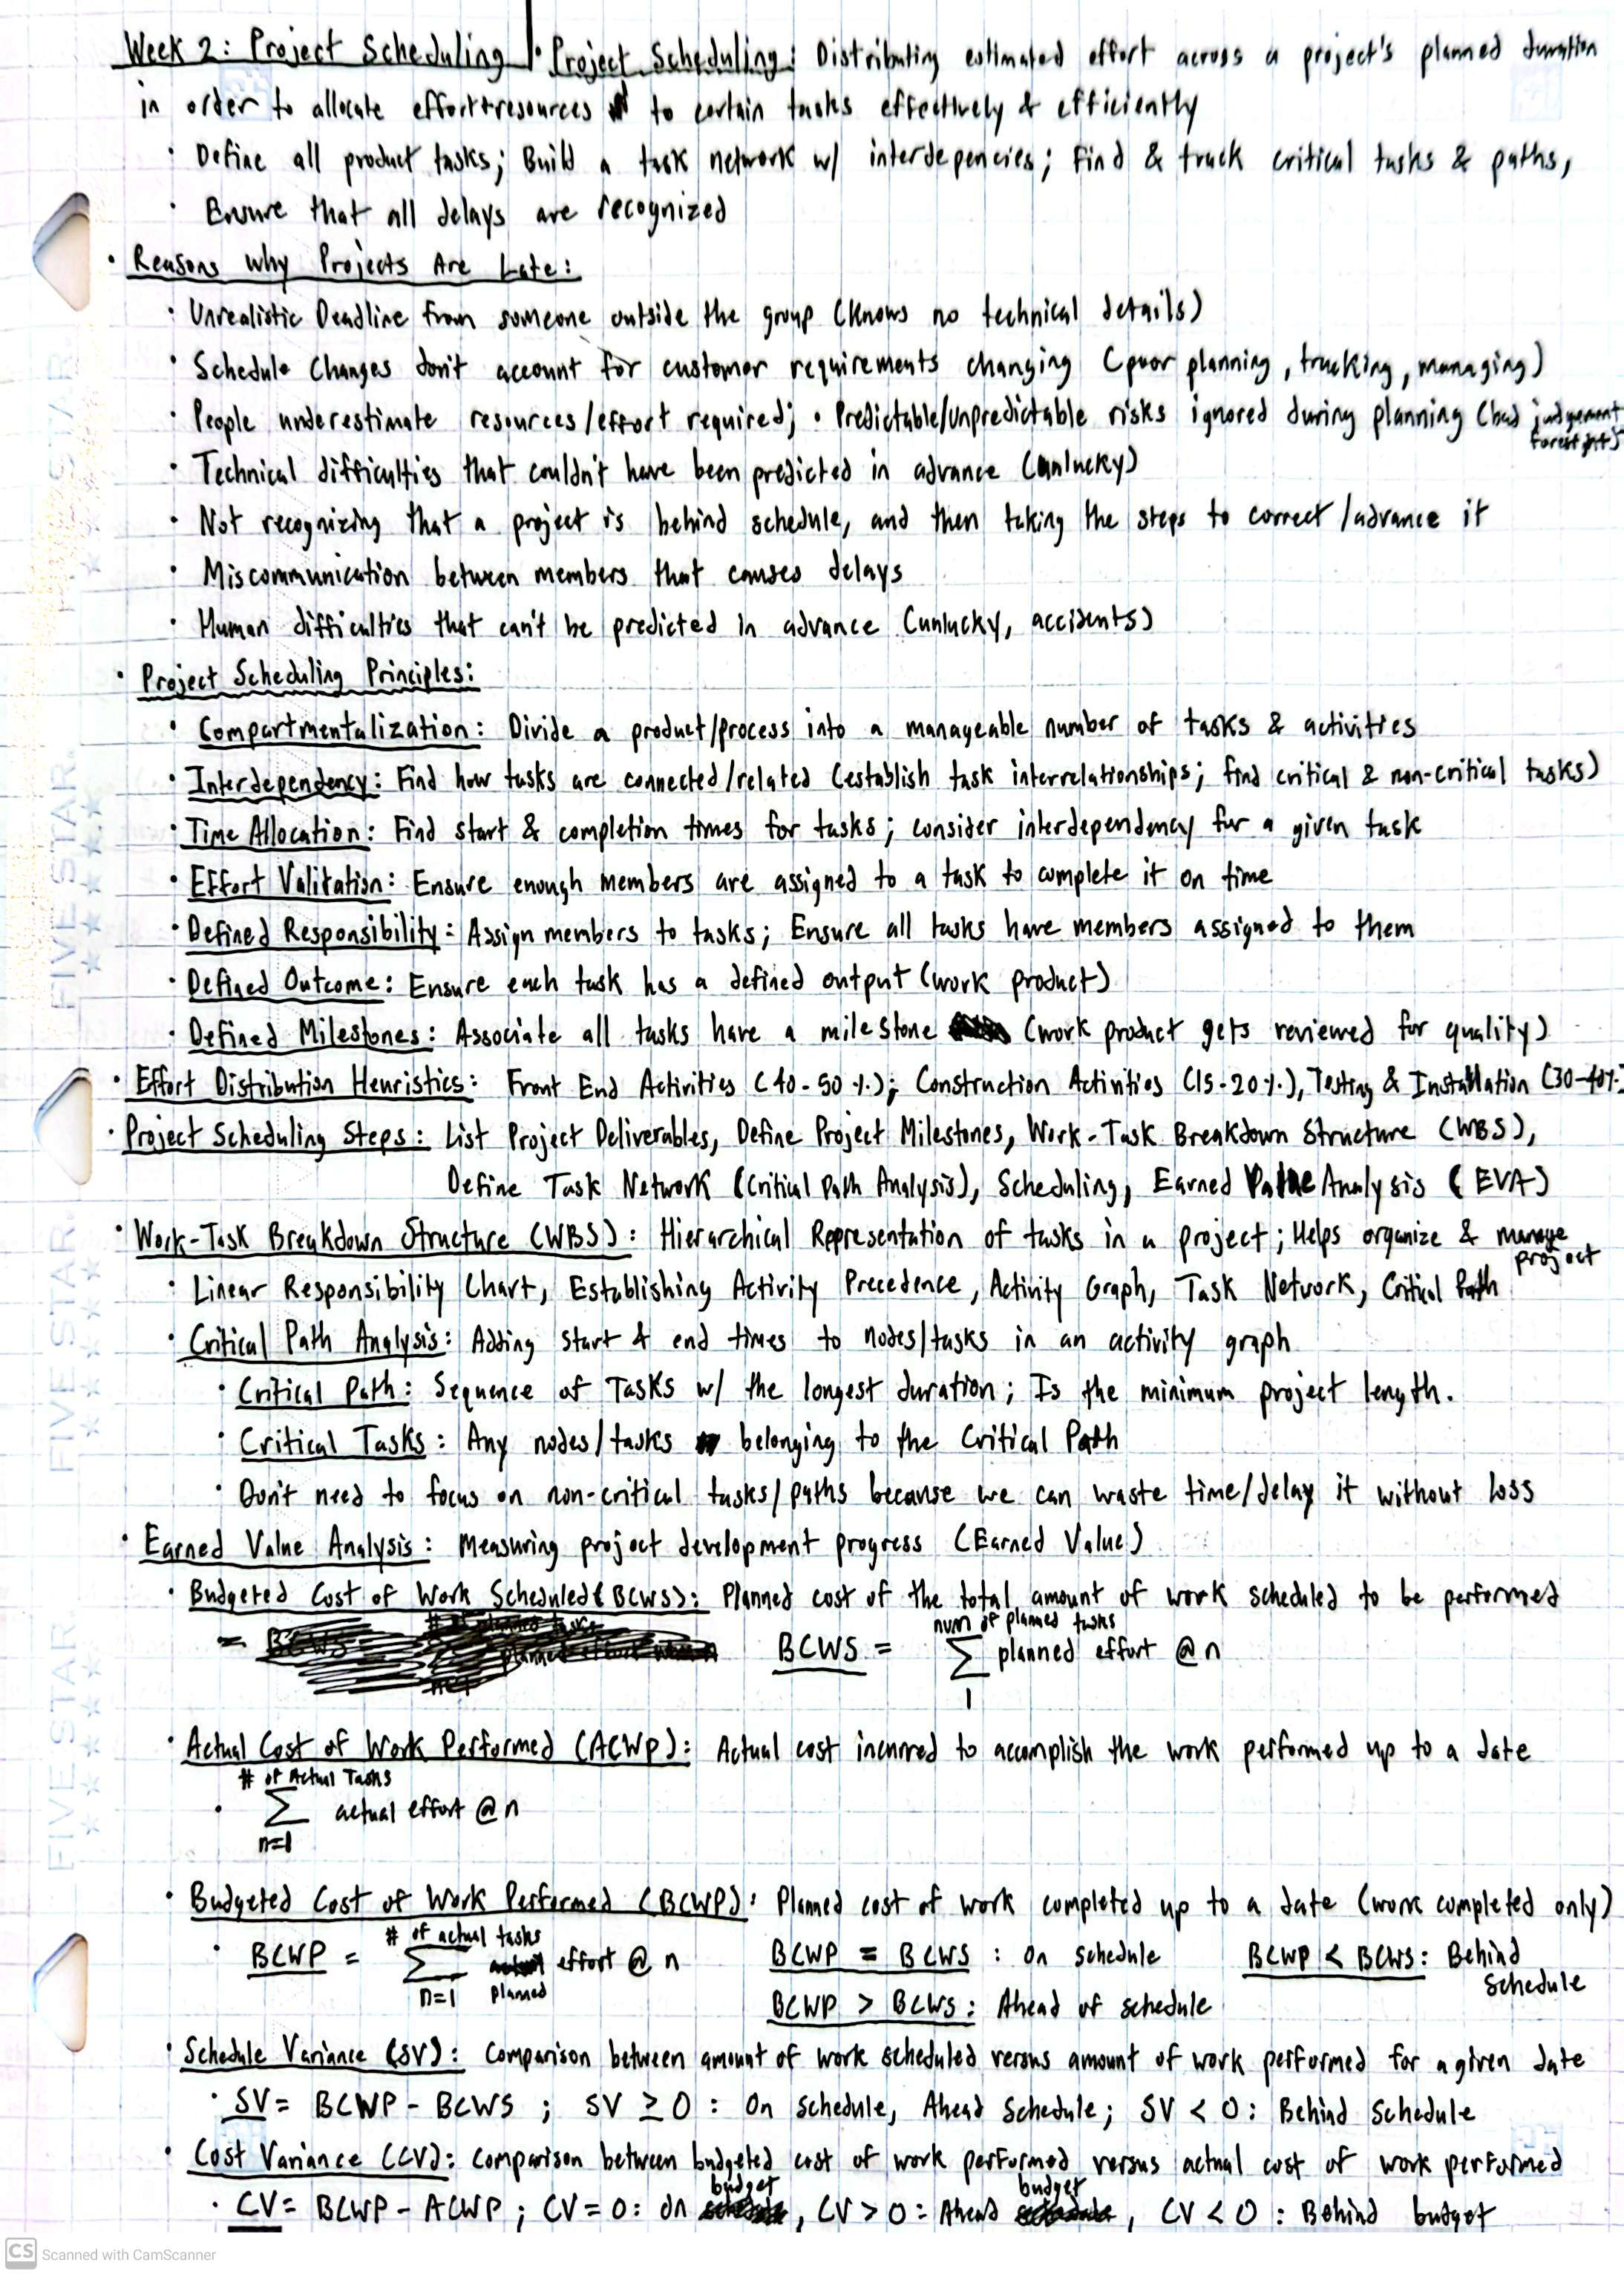 Week 2: Project Scheduling | • Project Scheduling: Distributing estimated effort across a project's planned duration
in order to allocate effort+resources to certain tasks effectively & efficiently
• Define all product tasks; Build a task network w/ interdepencies; Find & track critical tasks & paths,
• Ensure that all delays are recognized
• Reasons Why Projects Are Late:
• Unrealistic Deadline from someone outside the group (Knows no technical details)
• Schedule Changes don't account for customer requirements changing (poor planning, tracking, managing)
• People underestimate resources/effort required; • Predictable/Unpredictable risks ignored during planning (bad judgement
foresight)
• Technical difficulties that couldn't have been predicted in advance (unlucky)
• Not recognizing that a project is behind schedule, and then taking the steps to correct/advance it
• Miscommunication between members that causes delays
• Human difficulties that can't be predicted in advance (unlucky, accidents)
• Project Scheduling Principles:
• Compartmentalization: Divide a product/process into a manageable number of tasks & activities
• Interdependency: Find how tasks are connected/related (establish task interrelationships; find critical & non-critical tasks)
• Time Allocation: Find start & completion times for tasks; consider interdependency for a given task
• Effort Valitation: Ensure enough members are assigned to a task to complete it on time
• Defined Responsibility: Assign members to tasks; Ensure all tasks have members assigned to them
• Defined Outcome: Ensure each task has a defined output (work product)
• Defined Milestones: Associate all tasks have a milestone (work product gets reviewed for quality)
• Effort Distribution Heuristics: Front End Activities (40-50%); Construction Activities (15-20%), Testing & Installation (30-40%)
• Project Scheduling Steps: List Project Deliverables, Define Project Milestones, Work-Task Breakdown Structure (WBS),
Define Task Network (Critical Path Analysis), Scheduling, Earned Value Analysis (EVA)
• Work-Task Breakdown Structure (WBS): Hierarchical Representation of tasks in a project; Helps organize & manage
project
• Linear Responsibility Chart, Establishing Activity Precedence, Activity Graph, Task Network, Critical Path
• Critical Path Analysis: Adding start & end times to nodes/tasks in an activity graph
• Critical Path: Sequence of Tasks w/ the longest duration; Is the minimum project length.
• Critical Tasks: Any nodes/tasks belonging to the Critical Path
• Don't need to focus on non-critical tasks/paths because we can waste time/delay it without loss
• Earned Value Analysis: Measuring project development progress (Earned Value)
• Budgeted Cost of Work Scheduled (BCWS): Planned cost of the total amount of work scheduled to be performed
num of planned tasks
BCWS = ∑ planned effort @ n
1
• Actual Cost of Work Performed (ACWP): Actual cost incurred to accomplish the work performed up to a date
# of Actual Tasks
• ∑ actual effort @ n
n=1
• Budgeted Cost of Work Performed (BCWP): Planned cost of work completed up to a date (work completed only)
# of actual tasks
• BCWP = ∑ planned effort @ n BCWP = BCWS : On schedule BCWP < BCWS: Behind
n=1 schedule
BCWP > BCWS: Ahead of schedule
• Schedule Variance (SV): Comparison between amount of work scheduled versus amount of work performed for a given date
• SV = BCWP - BCWS ; SV ≥ 0 : On schedule, Ahead Schedule; SV < 0: Behind Schedule
• Cost Variance (CV): Comparison between budgeted cost of work performed versus actual cost of work performed
• CV = BCWP - ACWP ; CV = 0: on budget, CV > 0: Ahead budget, CV < 0 : Behind budget
FIVE STAR.
FIVE STAR.
FIVE STAR
FIVE STAR
CS Scanned with CamScanner